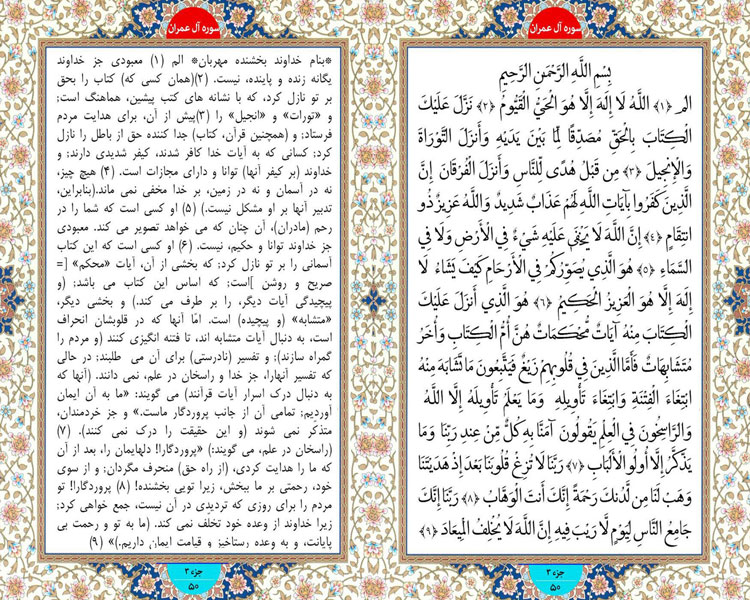 سوره آل عمران
بِسْمِ اللَّهِ الرَّحْمَنِ الرَّحِيمِ
الم ﴿١﴾ اللَّهُ لَا إِلَهَ إِلَّا هُوَ الْحَيُّ الْقَيُّومُ ﴿٢﴾ نَزَّلَ عَلَيْكَ
الْكِتَابَ بِالْحَقِّ مُصَدِّقًا لِمَا بَيْنَ يَدَيْهِ وَأَنزَلَ التَّوْرَاةَ
وَالْإِنجِيلَ ﴿٣﴾ مِن قَبْلُ هُدًى لِّلنَّاسِ وَأَنزَلَ الْفُرْقَانَ إِنَّ
الَّذِينَ كَفَرُوا بِآيَاتِ اللَّهِ لَهُمْ عَذَابٌ شَدِيدٌ وَاللَّهُ عَزِيزٌ ذُو
انتِقَامٍ ﴿٤﴾ إِنَّ اللَّهَ لَا يَخْفَىٰ عَلَيْهِ شَيْءٌ فِي الْأَرْضِ وَلَا فِي
السَّمَاءِ ﴿٥﴾ هُوَ الَّذِي يُصَوِّرُكُمْ فِي الْأَرْحَامِ كَيْفَ يَشَاءُ لَا
إِلَهَ إِلَّا هُوَ الْعَزِيزُ الْحَكِيمُ ﴿٦﴾ هُوَ الَّذِي أَنزَلَ عَلَيْكَ
الْكِتَابَ مِنْهُ آيَاتٌ مُّحْكَمَاتٌ هُنَّ أُمُّ الْكِتَابِ وَأُخَرُ
مُتَشَابِهَاتٌ فَأَمَّا الَّذِينَ فِي قُلُوبِهِمْ زَيْغٌ فَيَتَّبِعُونَ مَا تَشَابَهَ مِنْهُ
ابْتِغَاءَ الْفِتْنَةِ وَابْتِغَاءَ تَأْوِيلِهِ وَمَا يَعْلَمُ تَأْوِيلَهُ إِلَّا اللَّهُ
وَالرَّاسِخُونَ فِي الْعِلْمِ يَقُولُونَ آمَنَّا بِهِ كُلٌّ مِّنْ عِندِ رَبِّنَا وَمَا
يَذَّكَّرُ إِلَّا أُولُو الْأَلْبَابِ ﴿٧﴾ رَبَّنَا لَا تُزِغْ قُلُوبَنَا بَعْدَ إِذْ هَدَيْتَنَا
وَهَبْ لَنَا مِن لَّدُنكَ رَحْمَةً إِنَّكَ أَنتَ الْوَهَّابُ ﴿٨﴾ رَبَّنَا إِنَّكَ
جَامِعُ النَّاسِ لِيَوْمٍ لَّا رَيْبَ فِيهِ إِنَّ اللَّهَ لَا يُخْلِفُ الْمِيعَادَ ﴿٩﴾
جزء ۳
۵۰
سوره آل عمران
*بنام خداوند بخشنده مهربان* الم (۱) معبودی جز خداوند
یگانه زنده و پاینده، نیست. (۲)(همان کسی که) کتاب را بحق
بر تو نازل کرد، که با نشانه های کتب پیشین، هماهنگ است؛
و «تورات» و «انجیل» را (۳)پیش از آن، برای هدایت مردم
فرستاد؛ و (همچنین قرآن، کتاب) جدا کننده حق از باطل را نازل
کرد؛ کسانی که به آیات خدا کافر شدند، کیفر شدیدی دارند؛ و
خداوند (بر کیفر آنها) توانا و دارای مجازات است. (۴) هیچ چیز،
نه در آسمان و نه در زمین، بر خدا مخفی نمی ماند.(بنابراین،
تدبیر آنها بر او مشکل نیست.) (۵) او کسی است که شما را در
رحم (مادران)، آن چنان که می خواهد تصویر می کند. معبودی
جز خداوند توانا و حکیم، نیست. (۶) او کسی است که این کتاب
آسمانی را بر تو نازل کرد؛ که بخشی از آن، آیات «محکم» [=
صریح و روشن ]است؛ که اساس این کتاب می باشد؛ (و
پیچیدگی آیات دیگر، را بر طرف می کند.) و بخشی دیگر،
«متشابه» (و پیچیده) است. امّا آنها که در قلوبشان انحراف
است، به دنبال آیات متشابه اند، تا فتنه انگیزی کنند (و مردم را
گمراه سازند)؛ و تفسیر (نادرستی) برای آن می طلبند؛ در حالی
که تفسیر آنهارا، جز خدا و راسخان در علم، نمی دانند. (آنها که
به دنبال درک اسرار آیات قرآنند) می گویند: «ما به آن ایمان
آوردیم؛ تمامی آن از جانب پروردگار ماست.» و جز خردمندان،
متذکر نمی شوند (و این حقیقت را درک نمی کنند). (۷)
(راسخان در علم، می گویند:) «پروردگارا! دلهایمان را، بعد از آن
که ما را هدایت کردی، (از راه حق) منحرف مگردان؛ و از سوی
خود، رحمتی بر ما ببخش، زیرا تویی بخشنده! (۸) پروردگارا! تو
مردم را برای روزی که تردیدی در آن نیست، جمع خواهی کرد؛
زیرا خداوند از وعده خود تخلف نمی کند. (ما به تو و رحمت بی
پایانت، و به وعده رستاخیز و قیامت ایمان داریم.)» (۹)
جزء ۳
۵۰